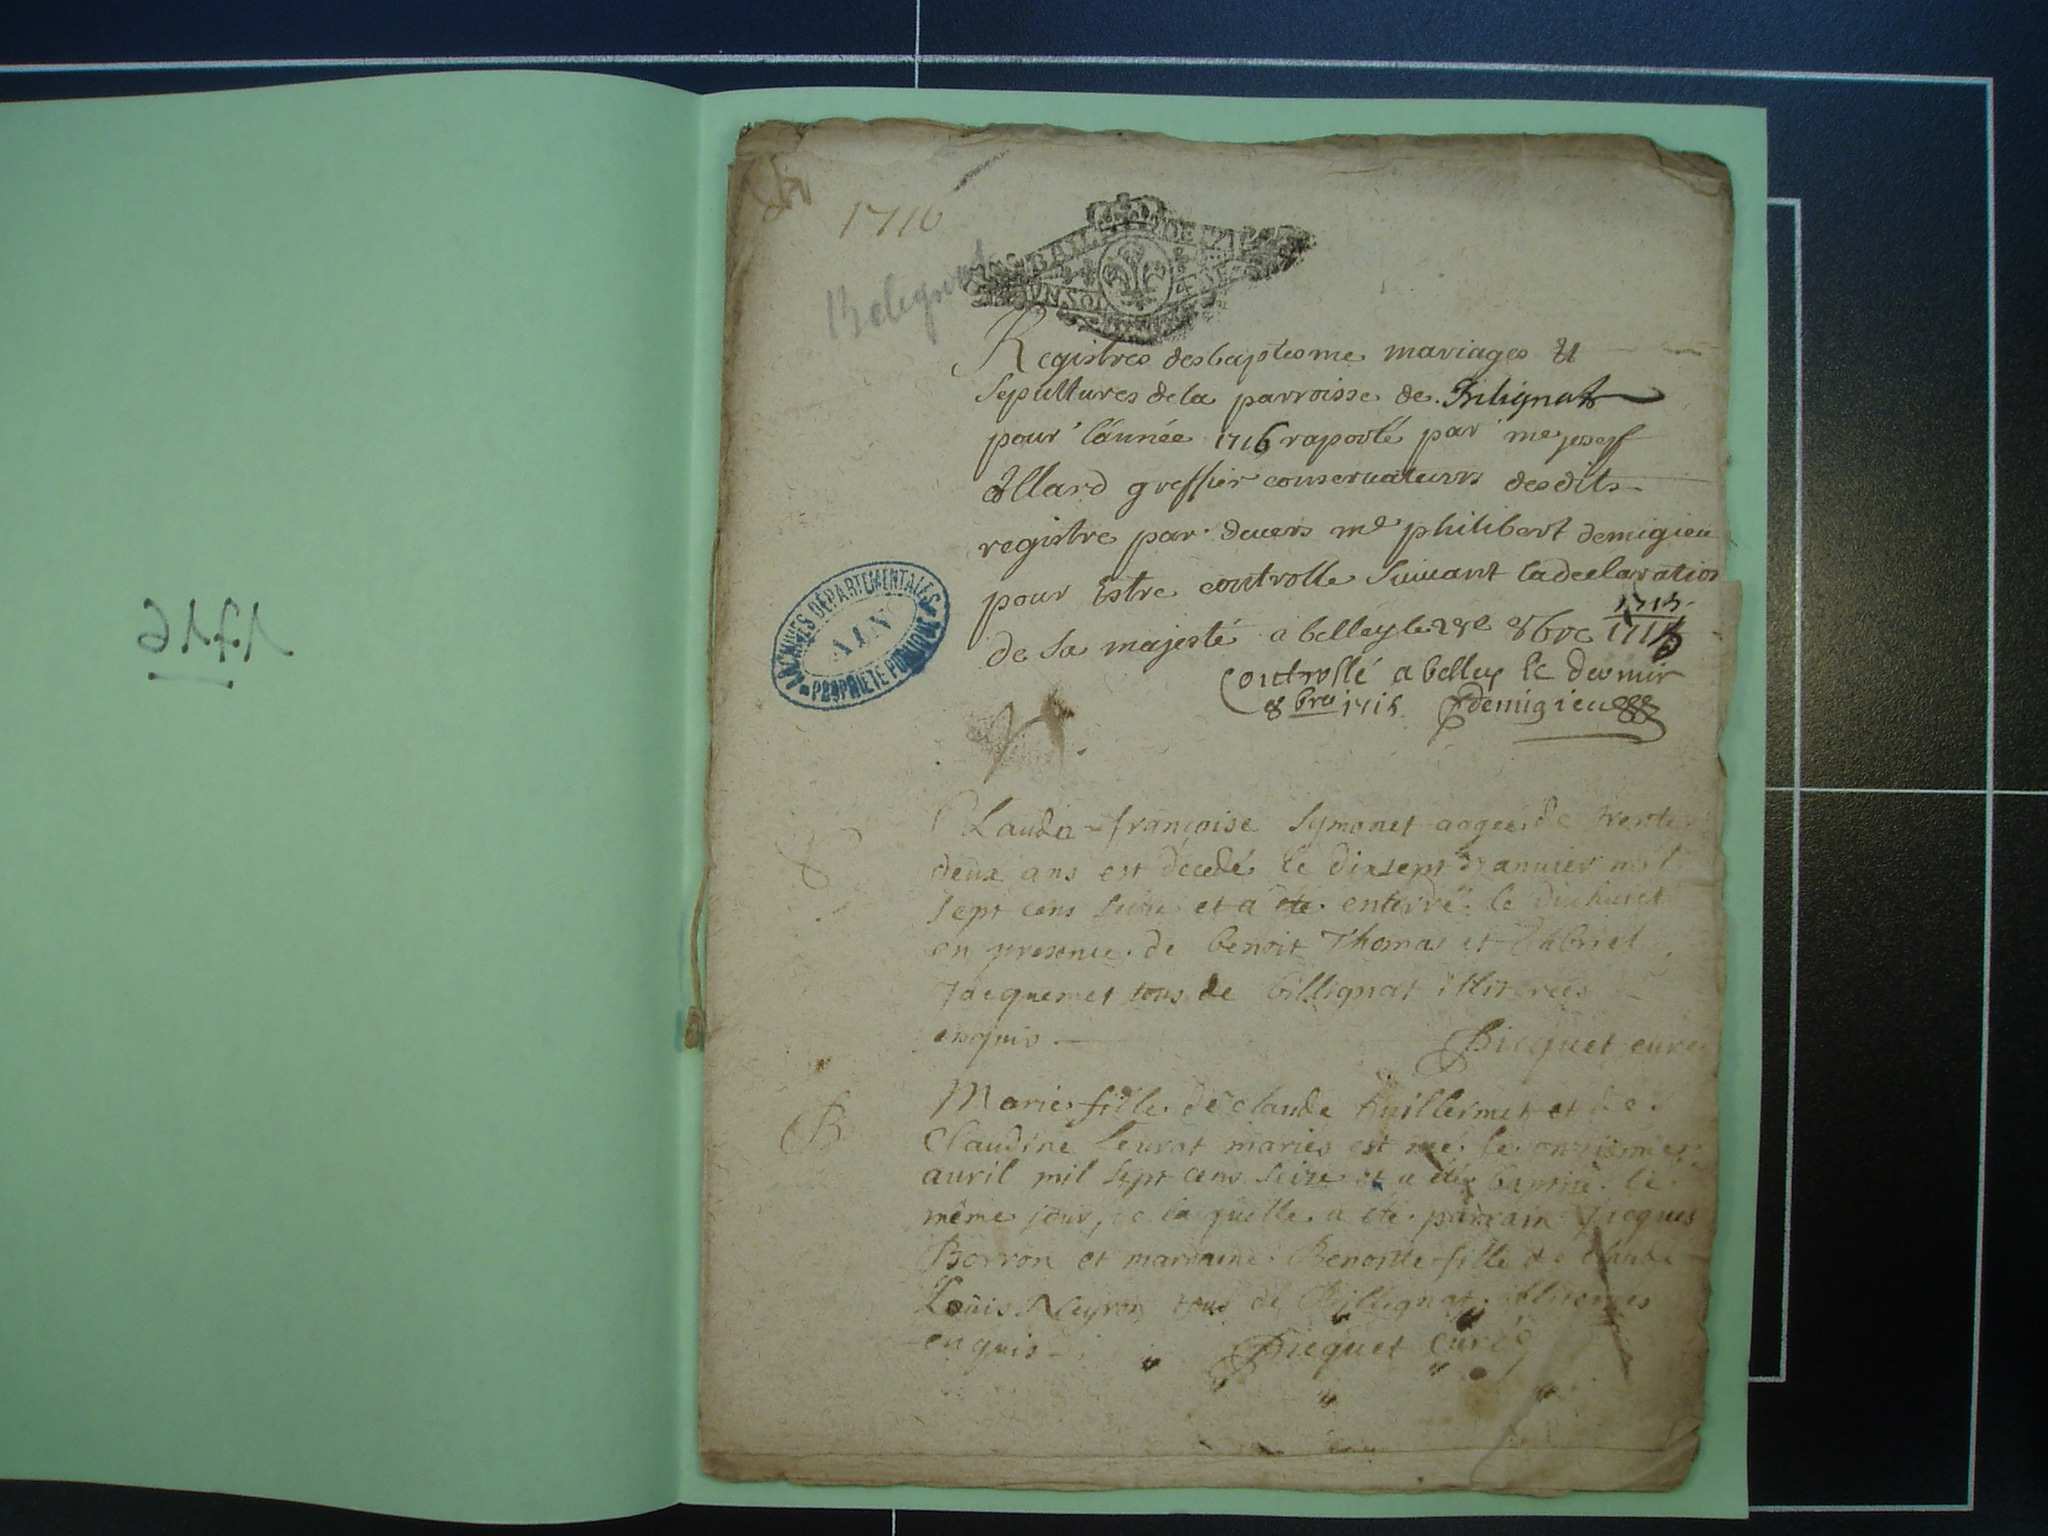 1716
Beleignat
Registres des baptesme mariages et
sepultures de la parroisse de Bilignat
pour l'année 1716 raporté par me josepf
allard greffier conservateurs desdits
registre par devers me philibert demigieu
pour Estre controlle suivant la declaration
de sa majesté a belley le 8bre 1715
Controllé a belley le dernier
8bre 1715 Demigieu
ARCHIVES DÉPARTEMENTALES
AIN
PROPRIÉTÉ PUBLIQUE
Clauda françoise Symonet aagée de trente
deux ans est décédé le dixsept janvier mil
sept cens seize et a été enterré le dixhuict
en presence de benoit Thomas et Gabriel
Jacquemet tous de billignat illitérées
enquis
Bicquet curé
B
Marie fille de claude Guillermet et de
Claudine leurat mariés est née le onziéme
avril mil sept cens seize et a été baptisé le
même jour, de laquelle a été parrain Jacques
Borron et marraine Benoitte fille de claude
Louis Neyron tous de Billignat illiterés
enquis
Bicquet Curé